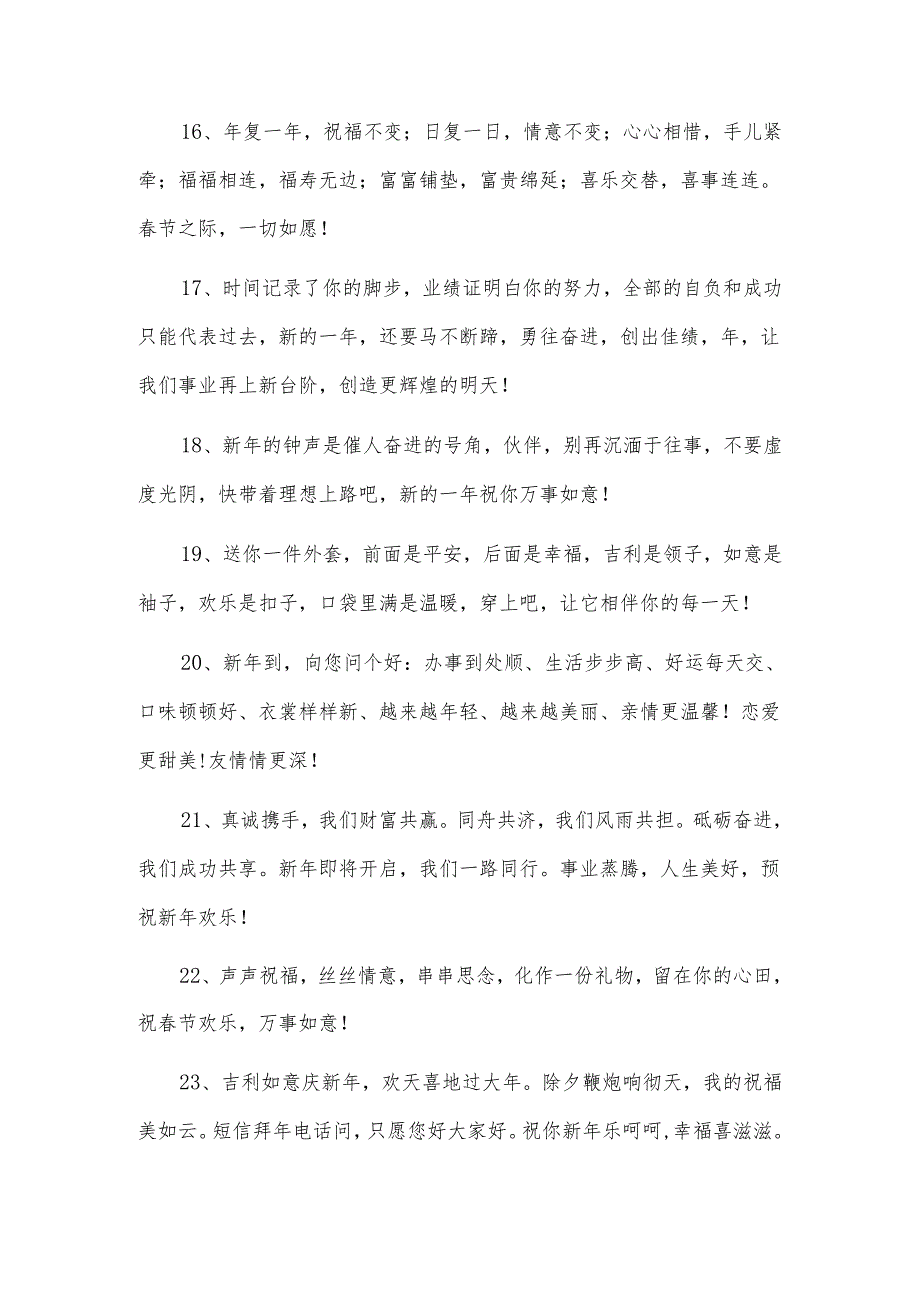 16、年复一年，祝福不变；日复一日，情意不变；心心相惜，手儿紧
牵；福福相连，福寿无边；富富铺垫，富贵绵延；喜乐交替，喜事连连。
春节之际，一切如愿！
17、时间记录了你的脚步，业绩证明白你的努力，全部的自负和成功
只能代表过去，新的一年，还要马不断蹄，勇往奋进，创出佳绩，年，让
我们事业再上新台阶，创造更辉煌的明天！
18、新年的钟声是催人奋进的号角，伙伴，别再沉湎于往事，不要虚
度光阴，快带着理想上路吧，新的一年祝你万事如意！
19、送你一件外套，前面是平安，后面是幸福，吉利是领子，如意是
袖子，欢乐是扣子，口袋里满是温暖，穿上吧，让它相伴你的每一天！
20、新年到，向您问个好：办事到处顺、生活步步高、好运每天交、
口味顿顿好、衣裳样样新、越来越年轻、越来越美丽、亲情更温馨！恋爱
更甜美!友情情更深！
21、真诚携手，我们财富共赢。同舟共济，我们风雨共担。砥砺奋进，
我们成功共享。新年即将开启，我们一路同行。事业蒸腾，人生美好，预
祝新年欢乐！
22、声声祝福，丝丝情意，串串思念，化作一份礼物，留在你的心田，
祝春节欢乐，万事如意！
23、吉利如意庆新年，欢天喜地过大年。除夕鞭炮响彻天，我的祝福
美如云。短信拜年电话问，只愿您好大家好。祝你新年乐呵呵,幸福喜滋滋。